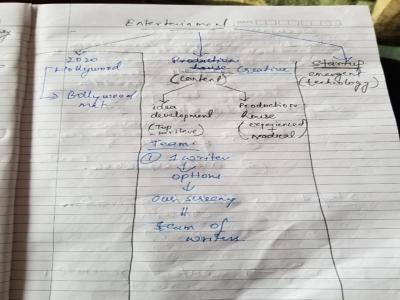 Entertainment
2020
Hollywood
Bollywood
mkt
Production
house Creative
(Content)
idea
development
(Top
writers)
Production
house
(experienced
Team:
① 1 writer
options
our screening
team of
writers
startup
emergent
(technology)